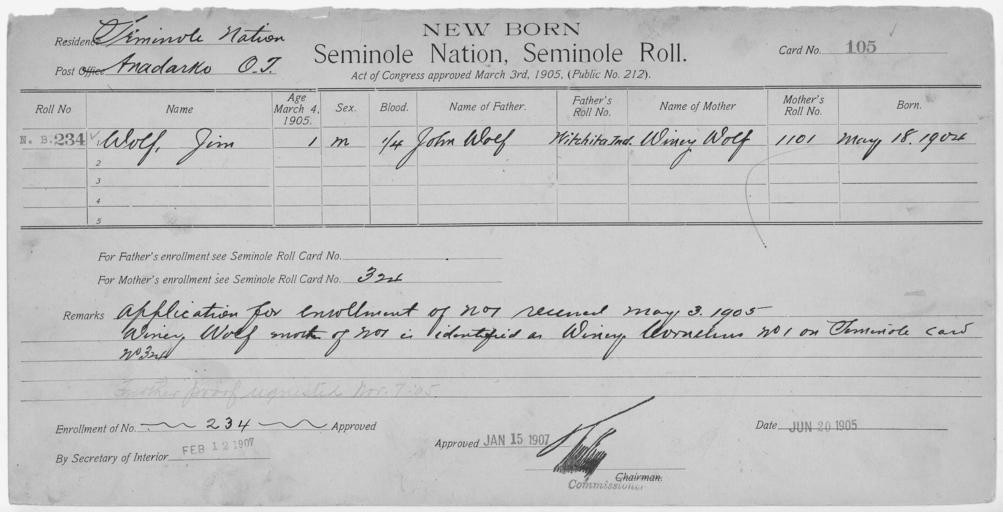 NEW BORN
Seminole Nation, Seminole Roll.
Act of Congress approved March 3rd, 1905, (Public No. 212).
Residence Seminole Nation
Post Office Anadarko O.T.
Card No. 105
Roll No Name Age March 4, 1905. Sex. Blood. Name of Father. Father's Roll No. Name of Mother Mother's Roll No. Born.
N. B. 234 1 Wolf, Jim 1 m 1/4 John Wolf Witchita Ind. Winey Wolf 1101 May 18. 1904
2
3
4
5
For Father's enrollment see Seminole Roll Card No.
For Mother's enrollment see Seminole Roll Card No. 324
Remarks Application for enrollment of No1 received May 3. 1905
Winey Wolf mother of No1 is identified as Winey Cornelius No 1 on Seminole card
No 324
Further proof requested Nov. 7-05.
Enrollment of No. 234 Approved
By Secretary of Interior FEB 12 1907
Approved JAN 15 1907
Chairman.
Commissioner
Date JUN 20 1905